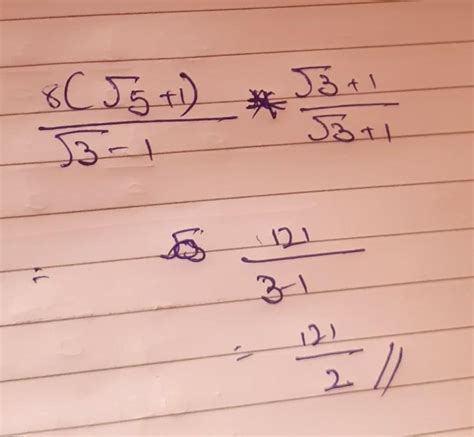 8(√5+1)/√3-1 * √3+1/√3+1
= 121/3-1
= 121/2 //